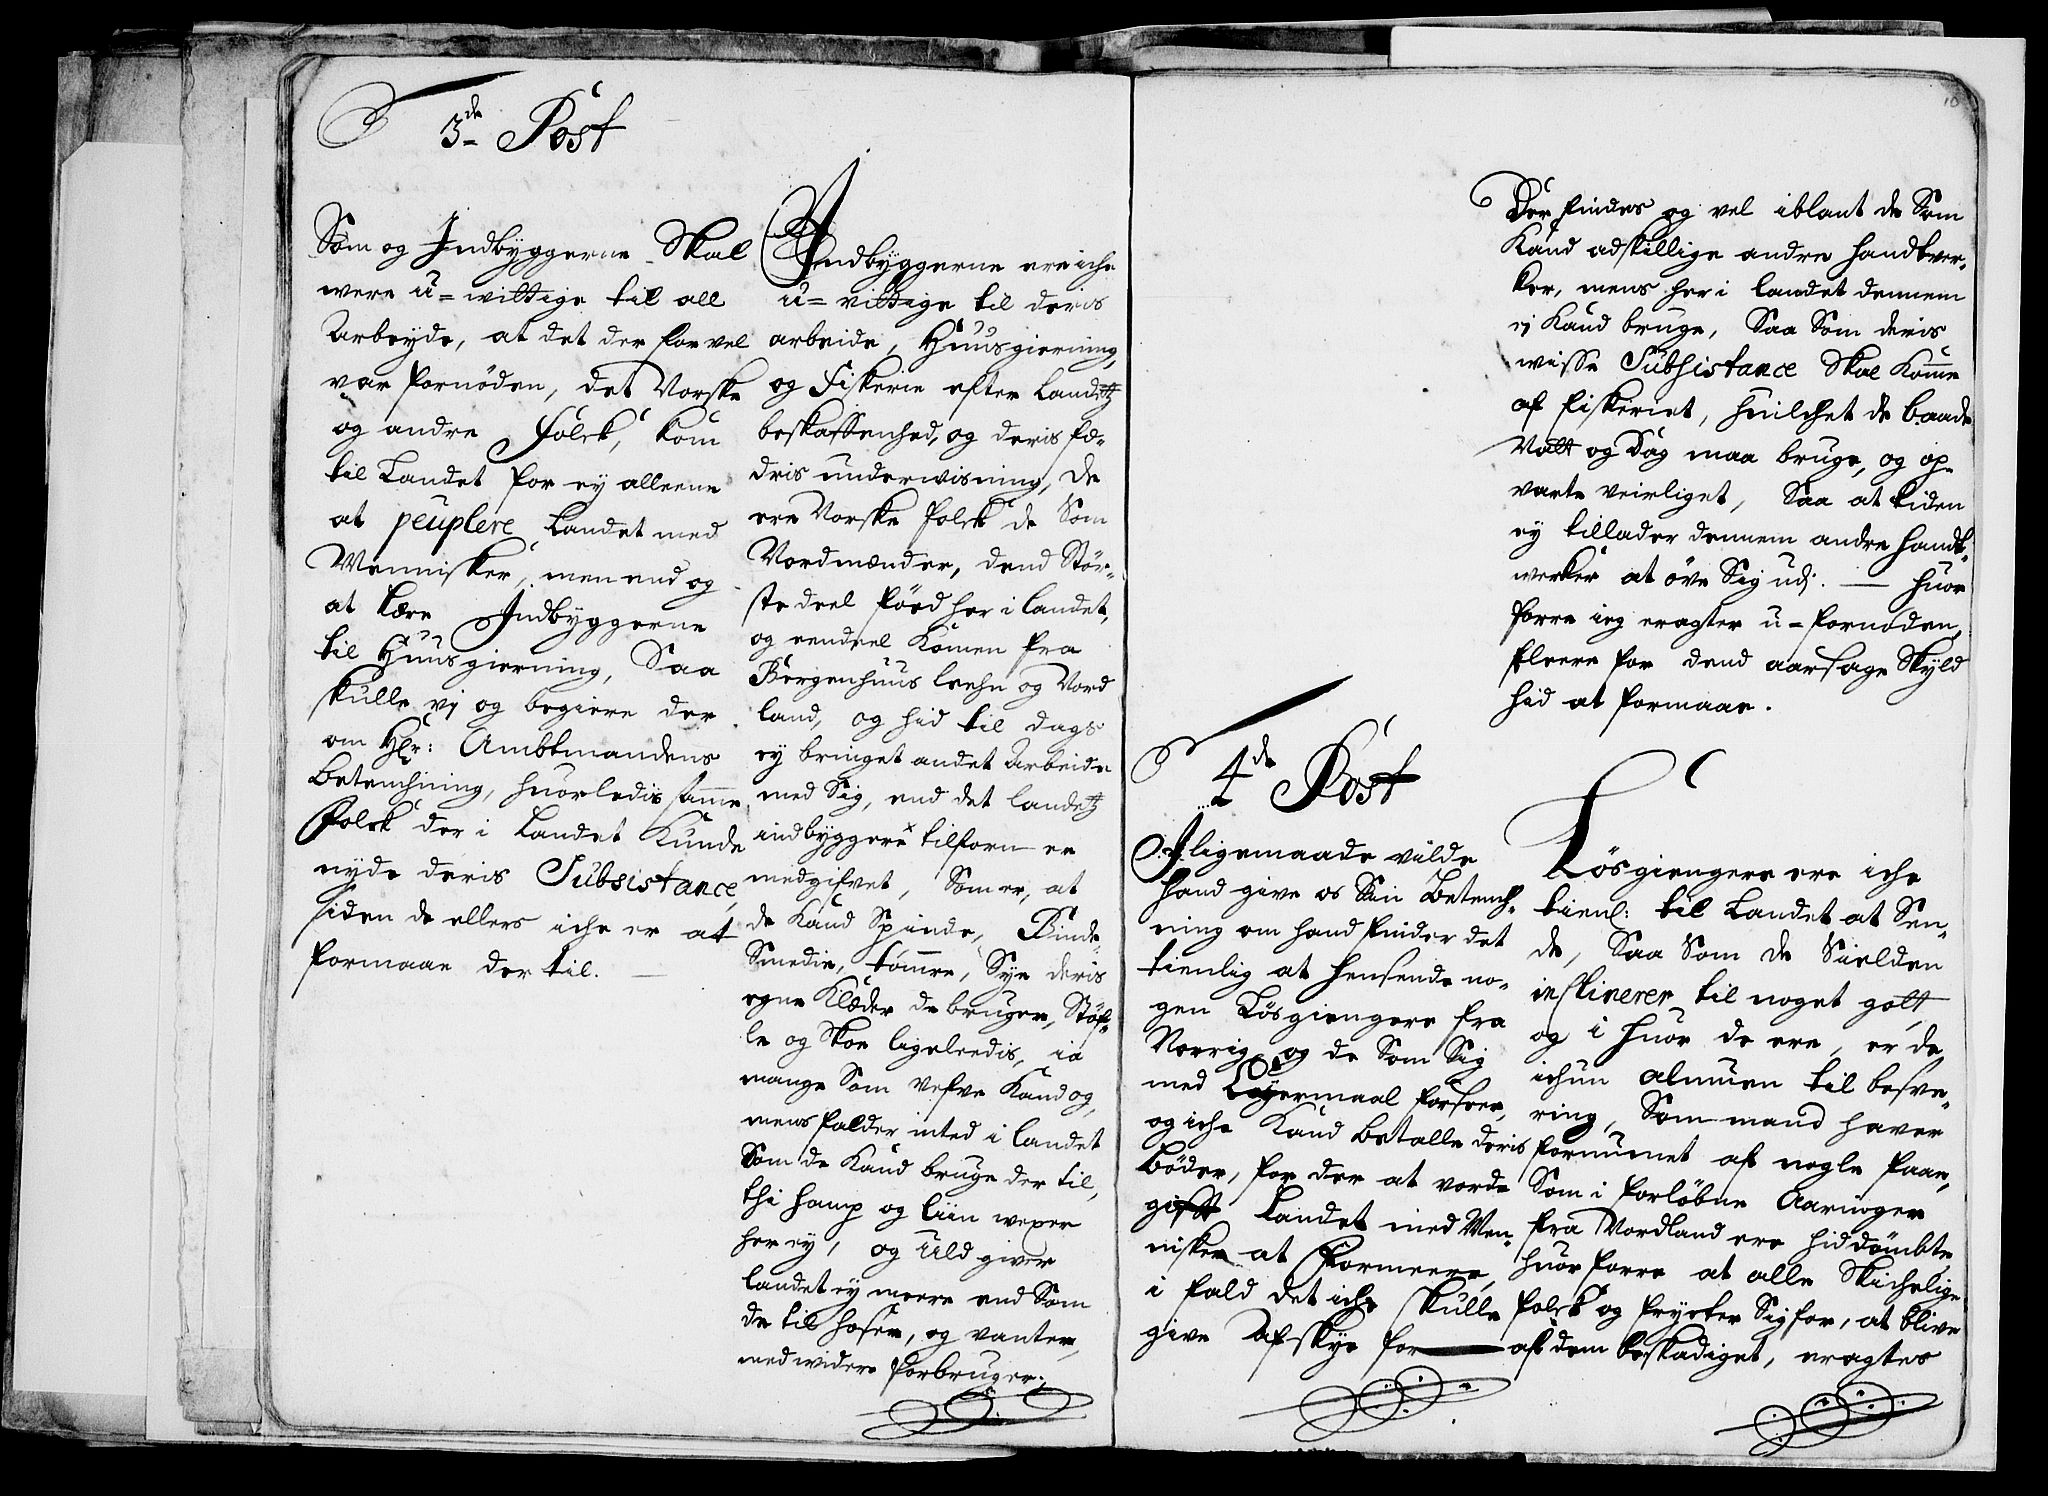 3de Post
Som og Indbyggerne Skal
were u=wittige til all
Arbeyde, at det der for vel
var fornøden, det Norske
og andre Folck, kom
til Landet for ey alleene
at peuplere Landet med
Mennisker, men end og
at lære Indbyggerne
til Huusgierning, Saa
skulle vj og begiere der
om Hr: Ambtmandens
Betenchning, huorledis samme
Folck der i Landet Kunde
nyde deris Subsistance,
siden de ellers iche er at
formaae der til.
Indbyggerne ere iche
u=vittige til deris
arbeide, Huusgierning,
og Fiskerie efter Landetz
beskaffenhed, og deris fæ-
dris underwisning, De
ere Norske folck de Som
Nordmænder, dend Stör-
ste deel föed her i landet,
og eendeel Komen fra
Bergenhuus leehn og Nord
land, og hid til dags
ey bringet andet Arbeide
med Sig, end det landetz
indbyggere tilforn er
medgifvet, Som er, at
de Kand Spinde, Binde,
Smedie, tømre, Sye deris
egne Klæder de bruger, Stöf-
le og Skoe ligeleedis, ia
mange Som Vefve Kand og,
mens falder inted i landet
Som de Kand bruge der til,
thi hamp og liin wexer
her ey, og Uld giver
landet ey meere end Som
de til hoser, og vanter,
med widere forbruger.
10
Der findes og vel iblant de Som
Kand adskillige andre handtver-
ker, mens her i landet dennem
ej Kand bruge, Saa Som deris
wisse Subsistance Skal Komme
af fiskeriet, huilchet de baade
Natt og Dag maa bruge, og op-
varte veirliget, Saa at tiden
ey tillader dennem andre handt-
werker at öve Sig udj. — huor
forre ieg eragter u=fornöden,
fleere for dend aarsage Skyld
hid at formaae.
4de Post
I ligemaade vilde
hand give os Sin Betench-
ning om hand finder det
tienlig at hensende no-
gen Lösgiengere fra
Norrig, og de Som Sig
med Leyermaal forseer,
og iche Kand betalle deris
Böder, for der at vorde
gifft Landet med Men-
nisker at Formeere,
i fald det iche skulle
give Afskye for
Lösgiengere ere iche
tienl: til Landet at Sen-
de, Saa Som de Sielden
inclinerer til noget gott,
og i huor de ere, er de
ichun almuen til besve-
ring, Som mand haver
fornumet af nogle faae,
Som i forløbne Aaringer
fra Nordland ere hiddömbte,
huor forre at alle Skichelige
folck og frycter Sig for, at blive
af dem beskadiget, eragtes